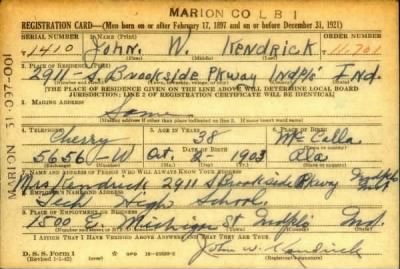 MARION CO L B 1
REGISTRATION CARD—(Men born on or after February 17, 1897 and on or before December 31, 1921)
SERIAL NUMBER 1. NAME (Print) ORDER NUMBER
1410 John. W. Kendrick 11,701
(First) (Middle) (Last)
2. PLACE OF RESIDENCE (Print)
2911 - S. Brookside Pkway Indpls Ind.
(Number and street) (Town, township, village, or city) (County) (State)
[THE PLACE OF RESIDENCE GIVEN ON THE LINE ABOVE WILL DETERMINE LOCAL BOARD
JURISDICTION; LINE 2 OF REGISTRATION CERTIFICATE WILL BE IDENTICAL]
3. MAILING ADDRESS
Same
[Mailing address if other than place indicated on line 2. If same insert word same]
4. TELEPHONE 5. AGE IN YEARS 6. PLACE OF BIRTH
Cherry 38 McCalla
DATE OF BIRTH
5656 W Oct 2 1903 Ala
7. NAME AND ADDRESS OF PERSON WHO WILL ALWAYS KNOW YOUR ADDRESS
Mrs Kendrick 2911 S Brookside Pkway Indpls Ind
8. EMPLOYER'S NAME AND ADDRESS
Tech High School
9. PLACE OF EMPLOYMENT OR BUSINESS
1500 E. Michigan St Indpls Ind.
I AFFIRM THAT I HAVE VERIFIED ABOVE ANSWERS AND THAT THEY ARE TRUE.
D. S. S. Form 1
John W. Kendrick
MARION 31-037-001